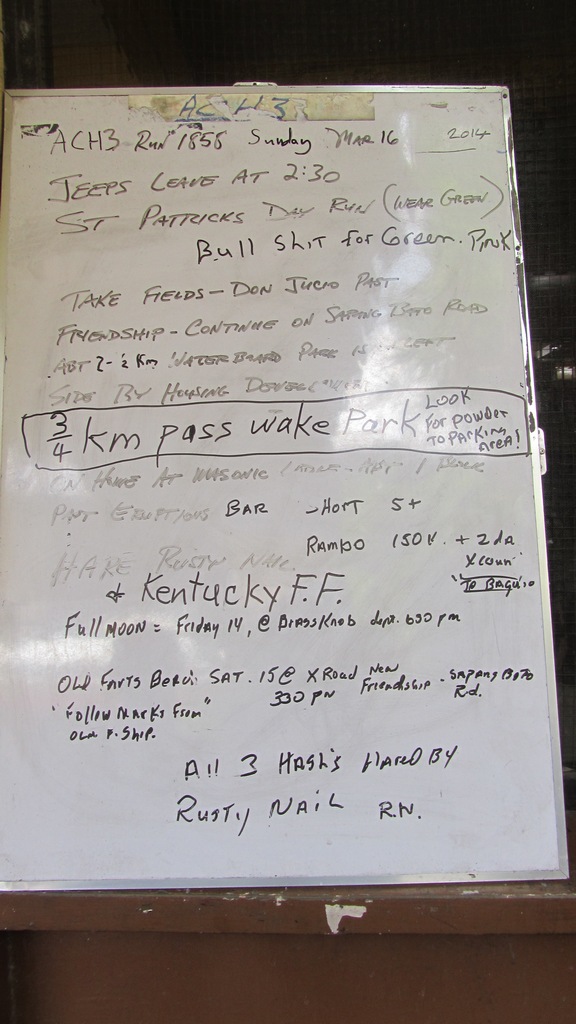 ACH3
ACH3 Run 1858 Sunday MAR 16 2014
JEEPS LEAVE AT 2:30
ST PATRICKS DAY RUN (WEAR GREEN)
Bull Shit for Green. PINK
TAKE FIELDS - DON JUCIO PAST
FRIENDSHIP - CONTINUE ON SAPANG BATO ROAD
ABT 2-½ Km WATERBOARD PARK IS ON LEFT
SIDE BY HOUSING
3/4 km pass wake Park LOOK For powder TO PARKING Area!
ON HOME AT MASONIC - ABT 1 BLOCK
PAST ERUPTIONS BAR SHORT 5+
RAMBO 150K. + 2 da
HARE RUSTY NAIL X coun
& Kentucky F.F. "To BAGUIO
Full MOON = Friday 14, @ BrassKnob dept. 630 pm
OLD Farts SAT. 15 @ X Road New Friendship - SAPANG BATO Rd.
"Follow Marks From" 330 PM
OLM F. Ship.
All 3 HASH'S Hared BY
RUSTY NAIL R.N.